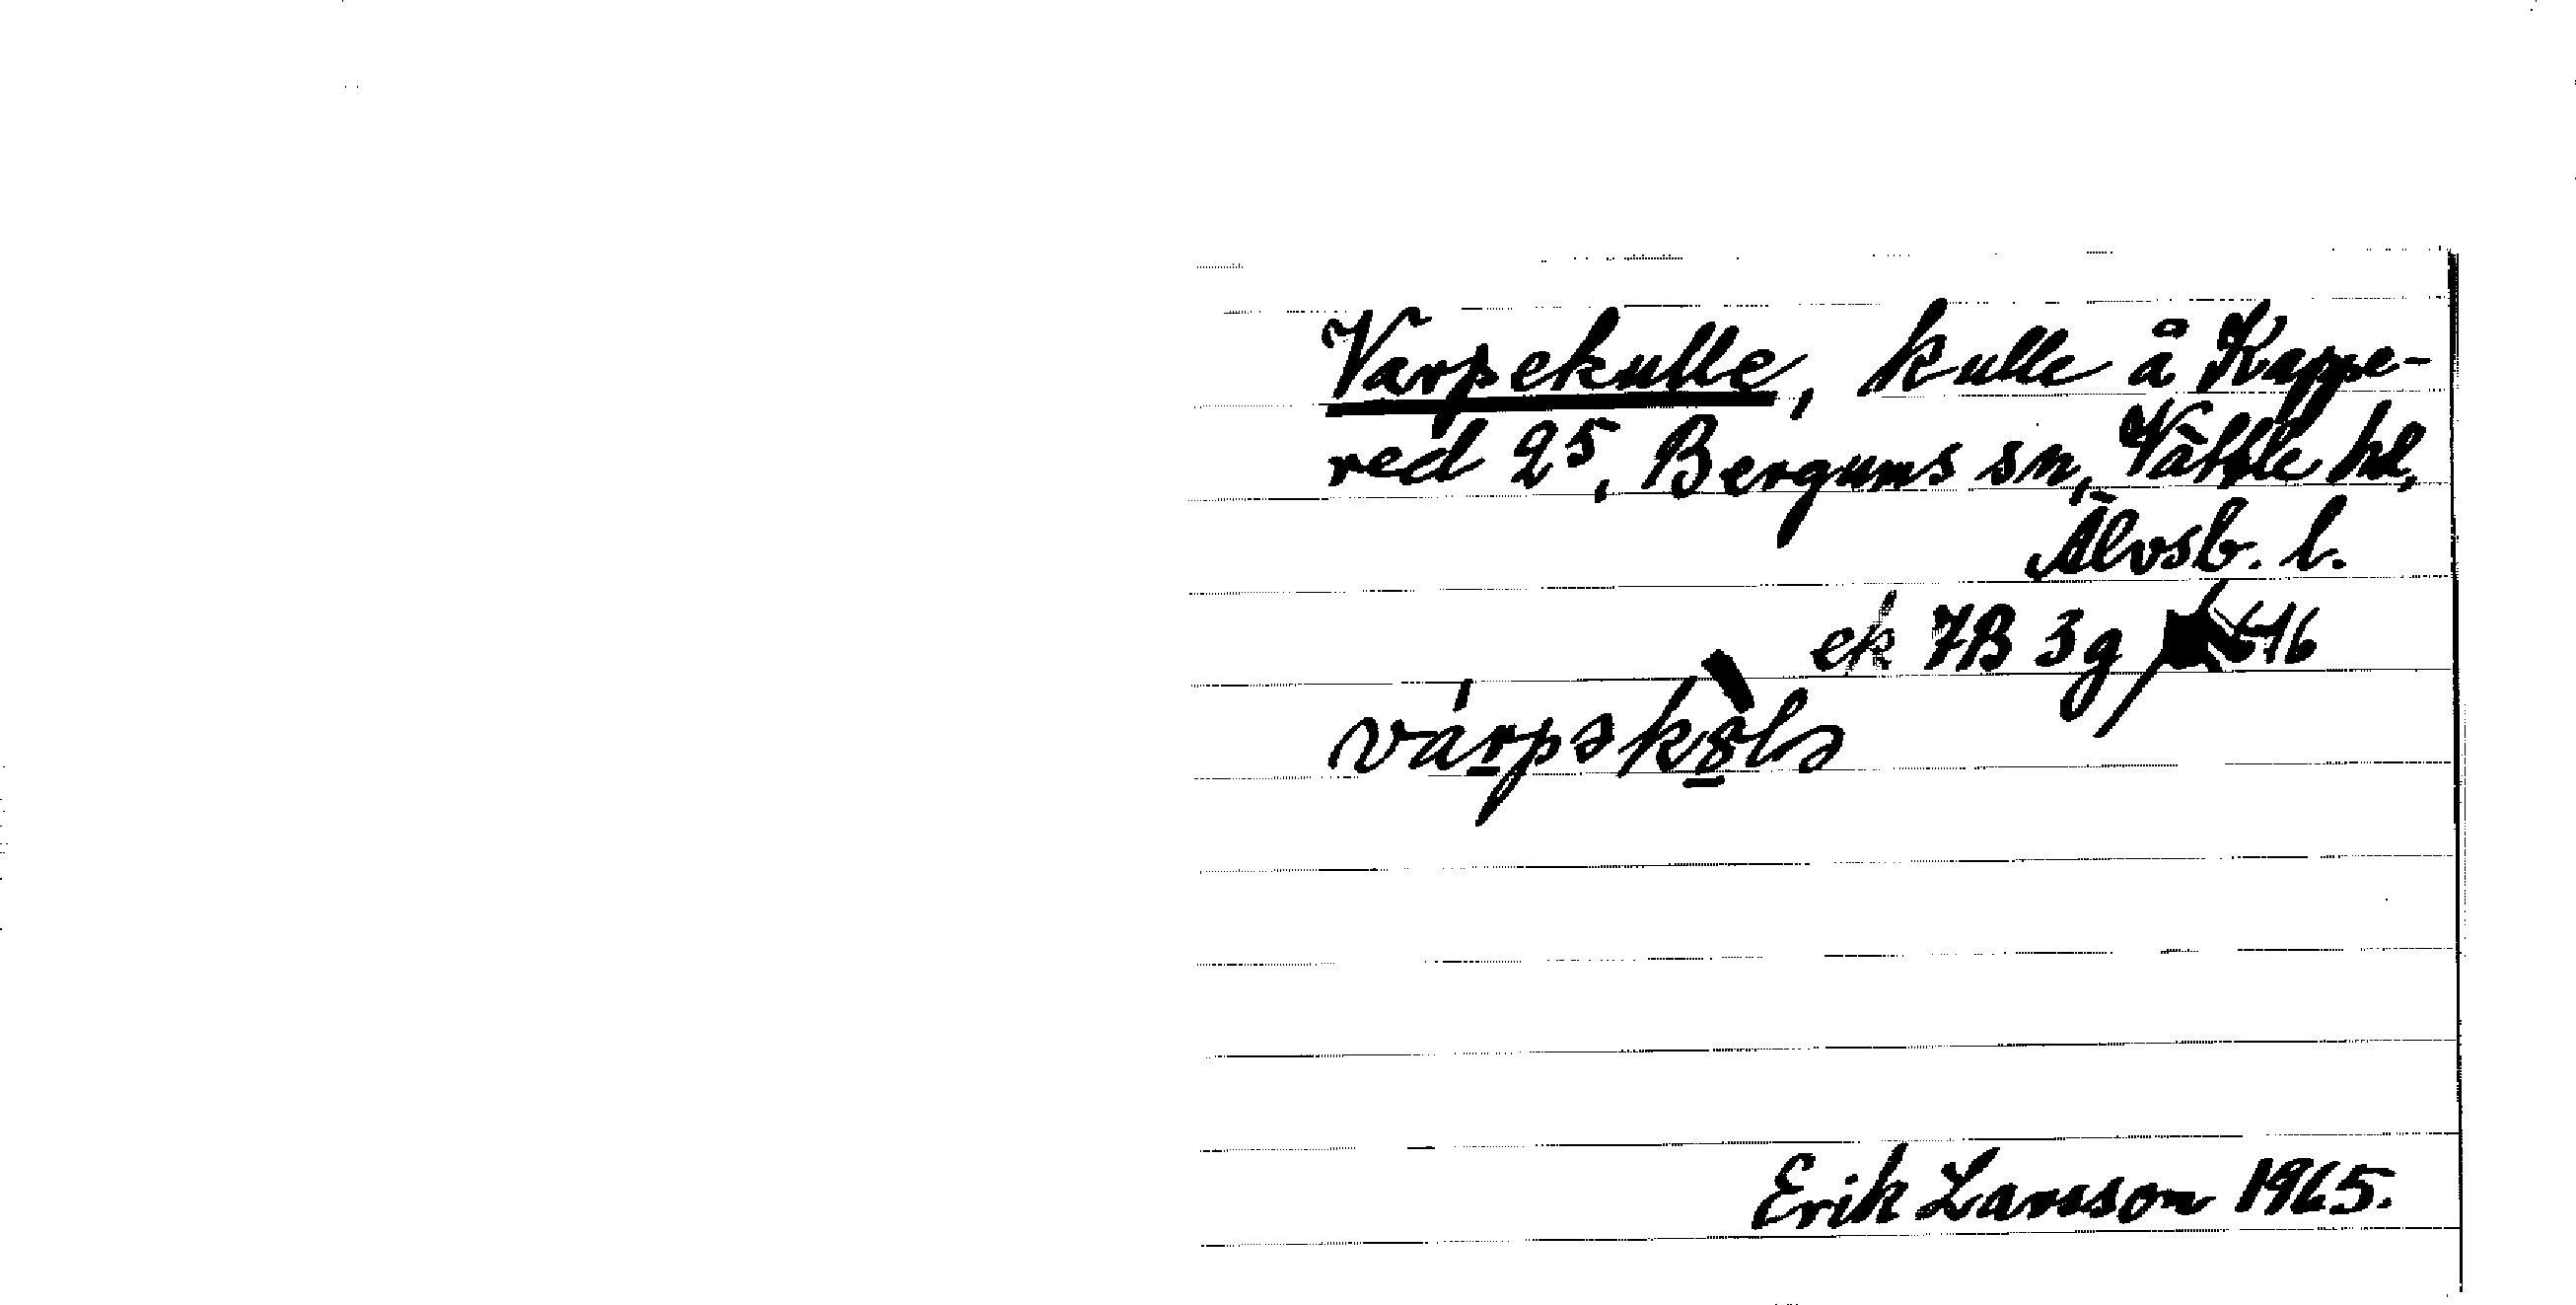 Varpekulle, kulle å Kappe-
red 2⁵, Bergums sn, Vättle hd,
Älvsb. l.
ek 7B 3g 616
várpəkòlə
Erik Larsson 1965.